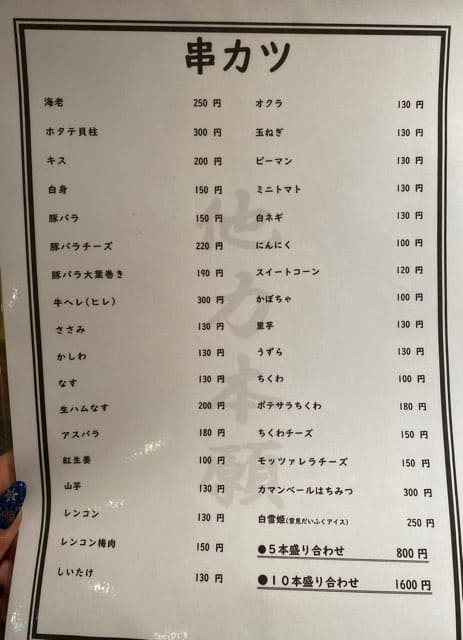 串カツ
海老 250 円
ホタテ貝柱 300 円
キス 200 円
白身 150 円
豚バラ 150 円
豚バラチーズ 220 円
豚バラ大葉巻き 190 円
牛ヘレ(ヒレ) 300 円
ささみ 130 円
かしわ 130 円
なす 130 円
生ハムなす 200 円
アスパラ 180 円
紅生姜 100 円
山芋 130 円
レンコン 130 円
レンコン梅肉 150 円
しいたけ 130 円
オクラ 130 円
玉ねぎ 130 円
ピーマン 130 円
ミニトマト 130 円
白ネギ 130 円
にんにく 100 円
スイートコーン 120 円
かぼちゃ 100 円
里芋 130 円
うずら 130 円
ちくわ 100 円
ポテサラちくわ 180 円
ちくわチーズ 150 円
モッツァレラチーズ 150 円
カマンベールはちみつ 300 円
白雪姫(雪見だいふくアイス) 250 円
●5本盛り合わせ 800 円
●10本盛り合わせ 1600 円
他力本願